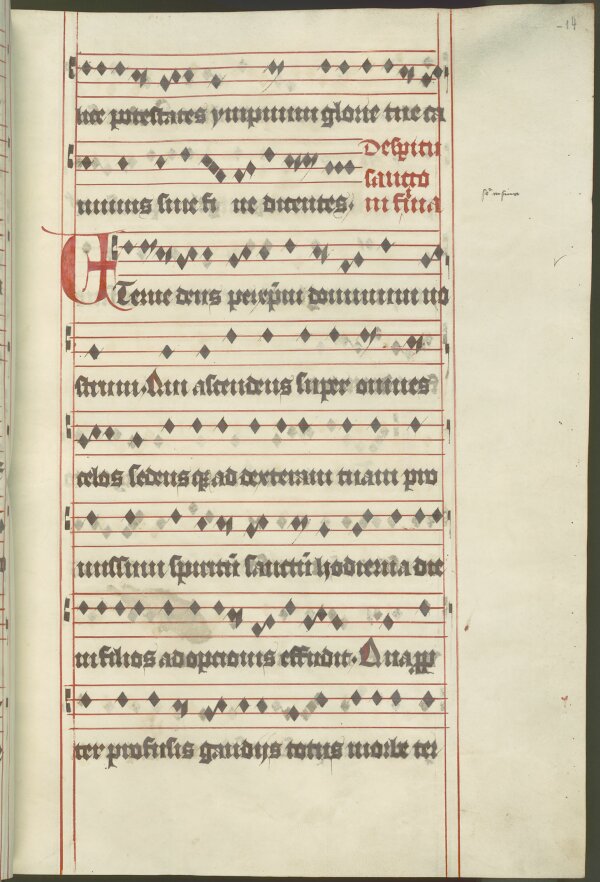 14
lice potestates ympnum glorie tue ca
De spiritu
nimus sine fi ne dicentes.
sancto
in sūma
Eterne deus per xp̄m dominum no
strum. Qui ascendens super omnes
celos sedensqꝫ ad dexteram tuam pro
missum spiritū sanctū hodierna die
in filios adoptionis effudit. Quapp
ter profusis gaudijs totus in orbe ter